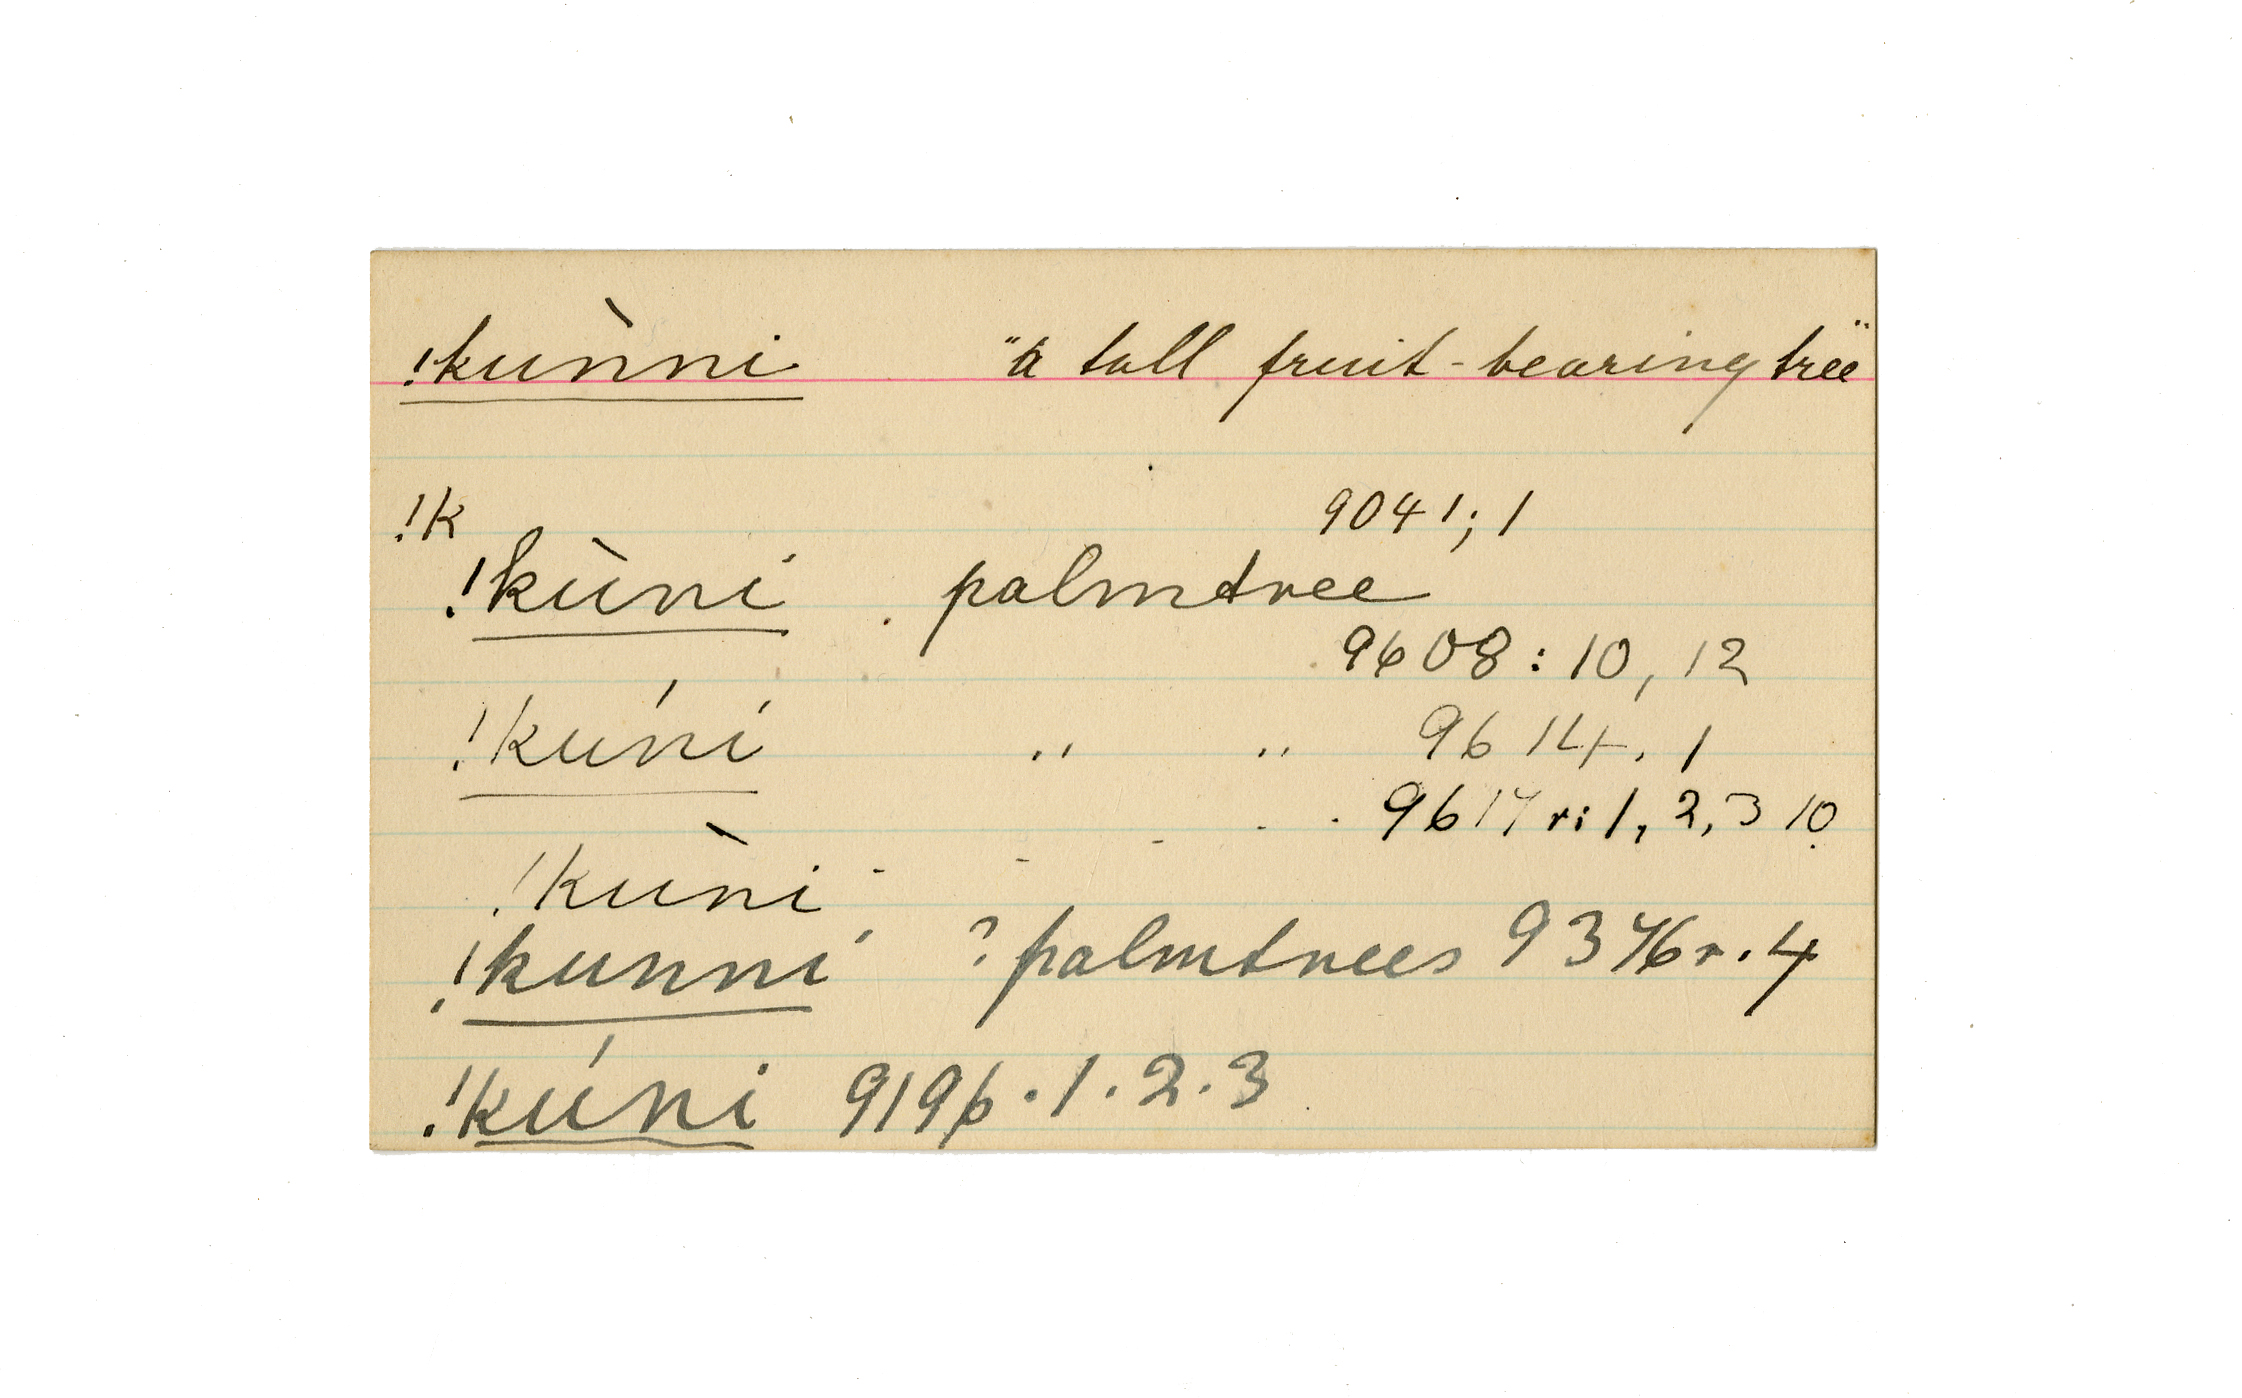 !kùnni "a tall fruit-bearing tree"
!k 9041; 1
!kùni palmtree
9608: 10, 12
!kúní " " 9614. 1
9617 r: 1, 2, 3 10.
!kùni
!kunní ? palmtrees 9376 r. 4
!kúni 9196. 1. 2. 3